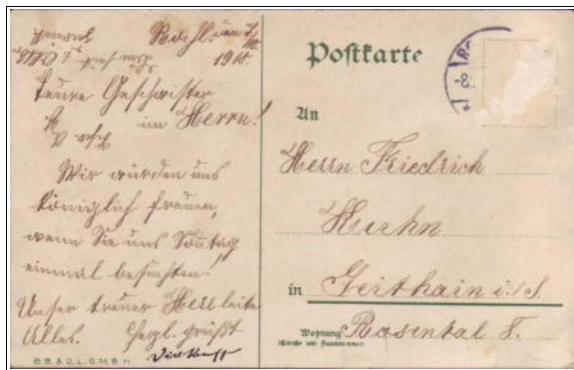 Rochl. den 7/III.
1918
Teure Geschwister
im Herrn!
Wir würden uns
königlich freuen,
wenn Sie uns Sonntag
einmal besuchten!
Unser treuer Herr leite
Alles. Herzl. grüßt
Postkarte
An
Herrn Friedrich
Huhn
in Geithain i./S.
Wohnung Rosental 8.
(Straße und Hausnummer)
B.B.&O.L.G.M.B.H.